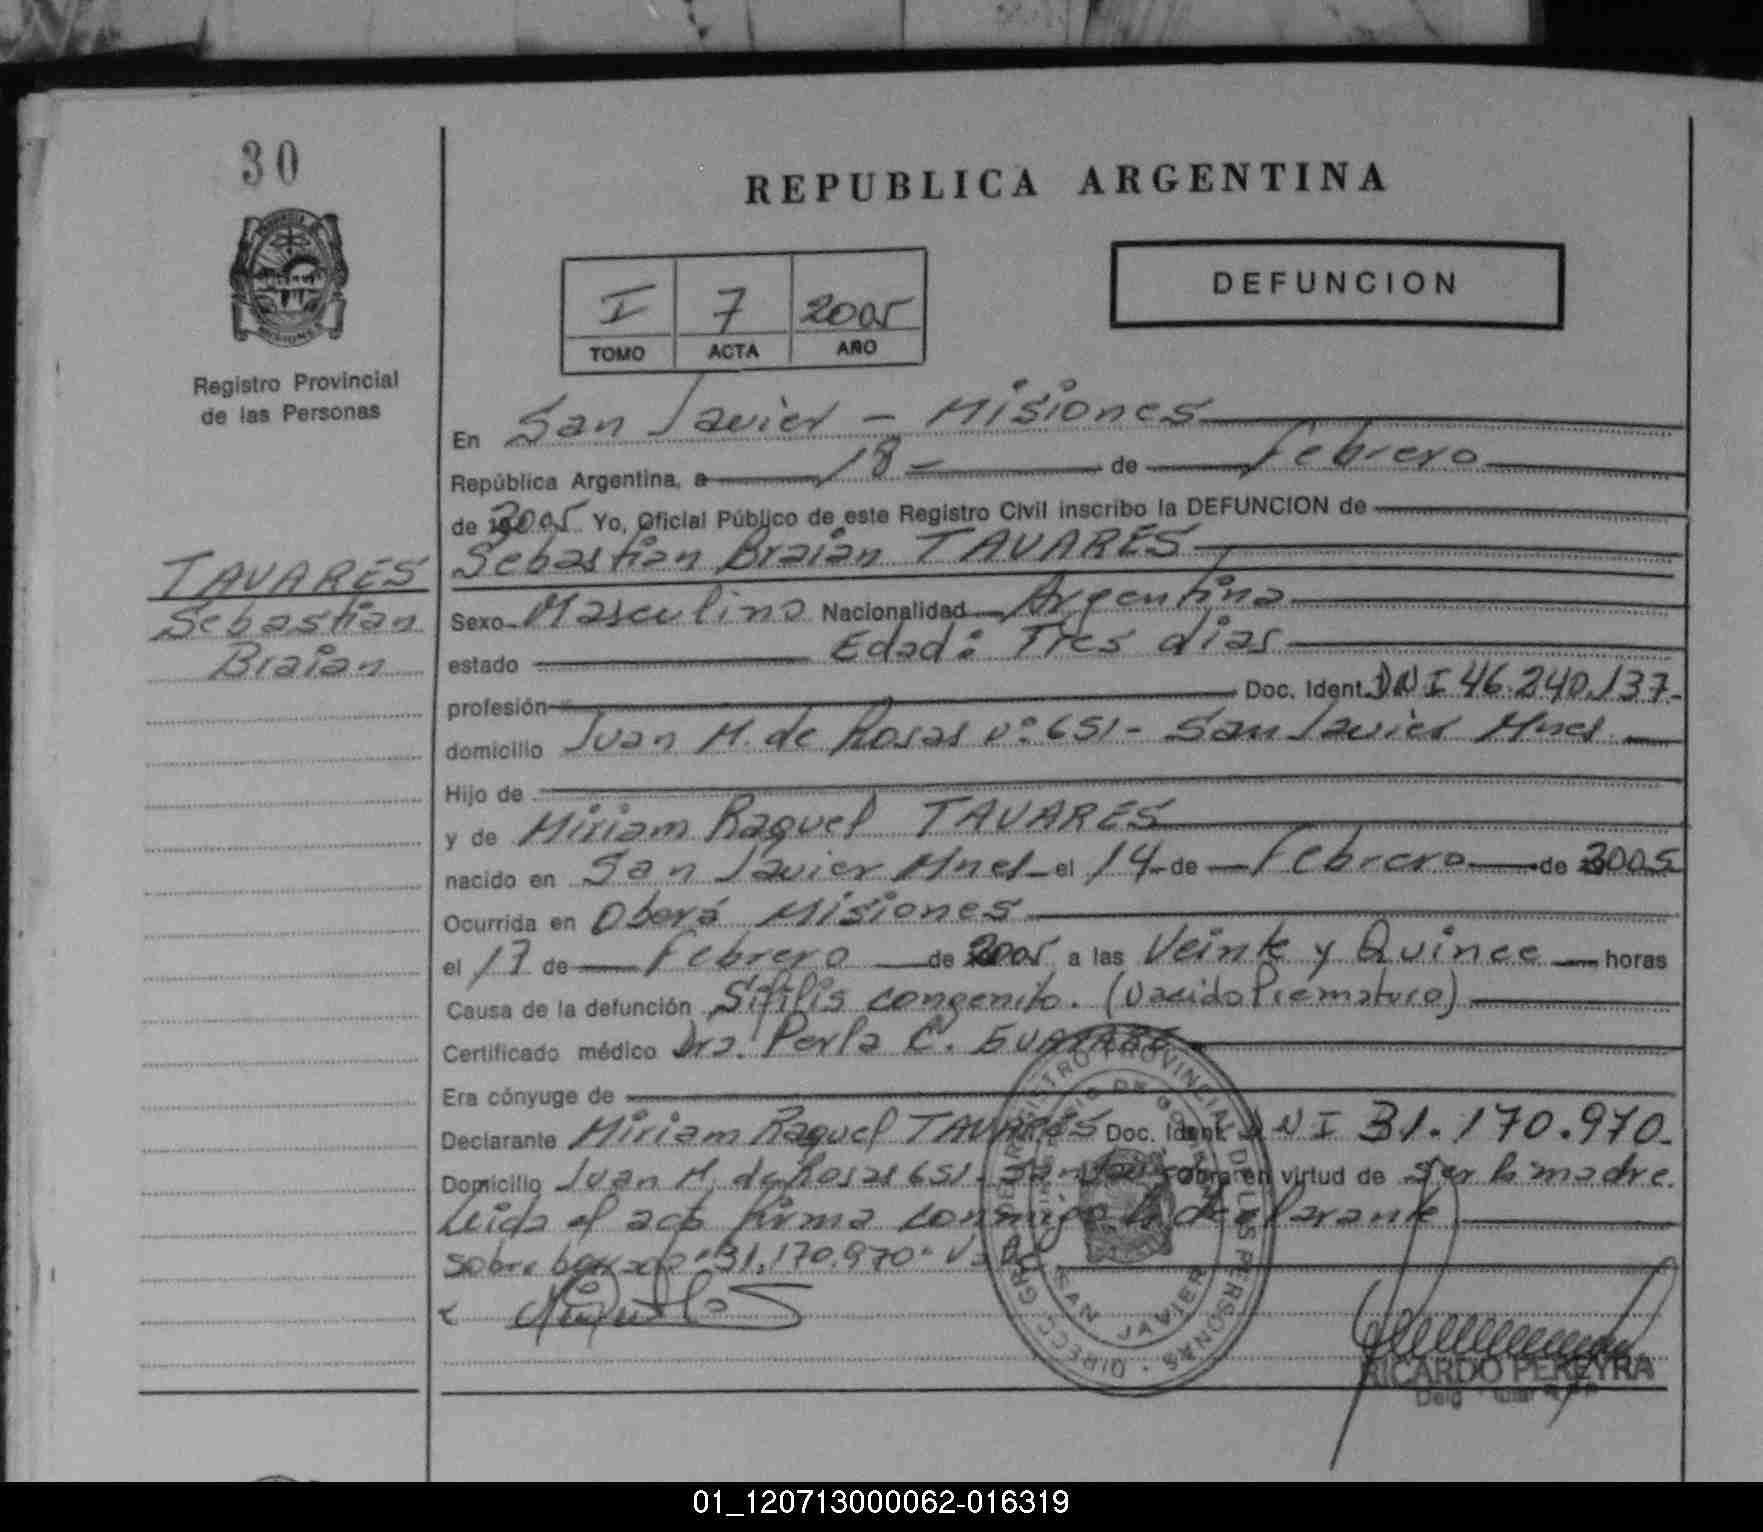 30
Registro Provincial
de las Personas
TAVARES
Sebastian
Braian
REPUBLICA ARGENTINA
I 7 2005
TOMO ACTA AÑO
DEFUNCION
En San Javier - Misiones
República Argentina, a 18 - de Febrero
de 2005 Yo, Oficial Público de este Registro Civil inscribo la DEFUNCION de
Sebastian Braian TAVARES
Sexo Masculino Nacionalidad Argentina
estado Edad: Tres dias
profesión Doc. Ident. DNI 46.240.137-
domicilio Juan M. de Rosas Nº 651 - San Javier Mnes.
Hijo de
y de Miriam Raquel TAVARES
nacido en San Javier Mnes el 14 de Febrero de 2005
Ocurrida en Oberá Misiones
el 17 de Febrero de 2005 a las Veinte y Quince horas
Causa de la defunción Sífilis congenito. (Nacido Prematuro)
Certificado médico Dra. Perla C.
Era cónyuge de
Declarante Miriam Raquel TAVARES Doc. Ident. DNI 31.170.970.
Domicilio Juan M. de Rosas 651 - San Jav obra en virtud de ser la madre.
Leida el acta firma conmigo la declarante
sobre borrado "31.170.970" Vale
REGISTRO PROVINCIAL DE LAS PERSONAS
SAN JAVIER
RICARDO PEREYRA
01_120713000062-016319